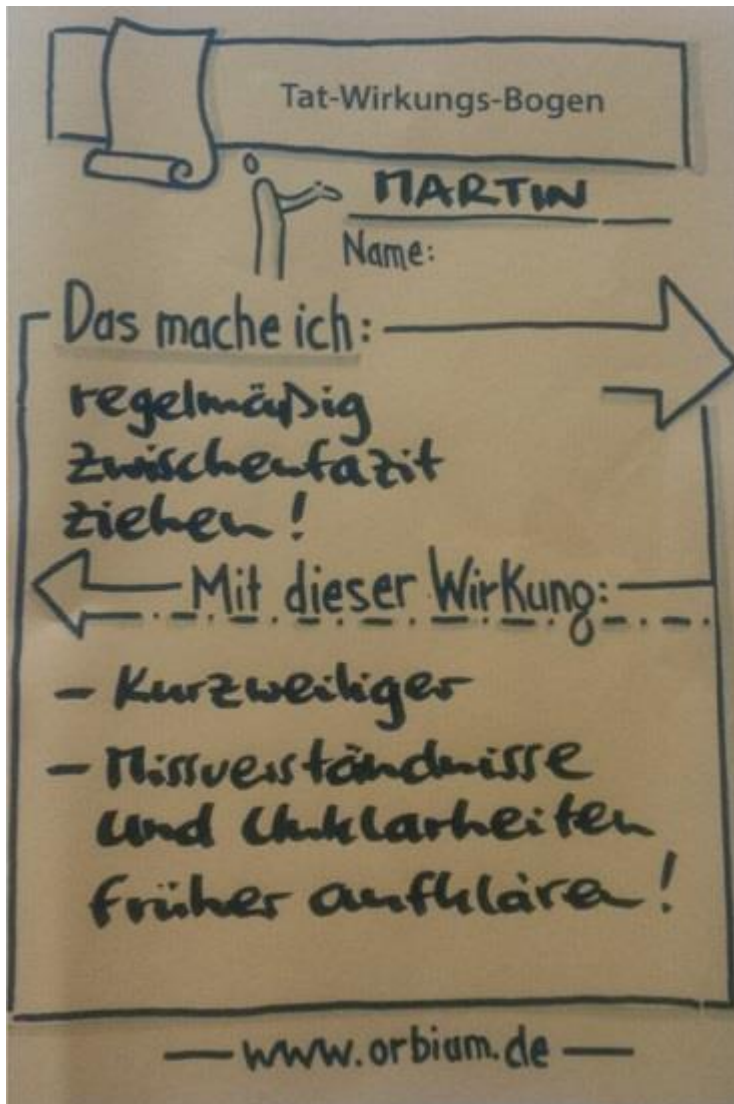 Tat-Wirkungs-Bogen
MARTIN
Name:
Das mache ich:
regelmäßig
zwischenfazit
ziehen!
Mit dieser Wirkung:
- Kurzweiliger
- Missverständnisse
und Unklarheiten
früher aufklären!
www.orbium.de